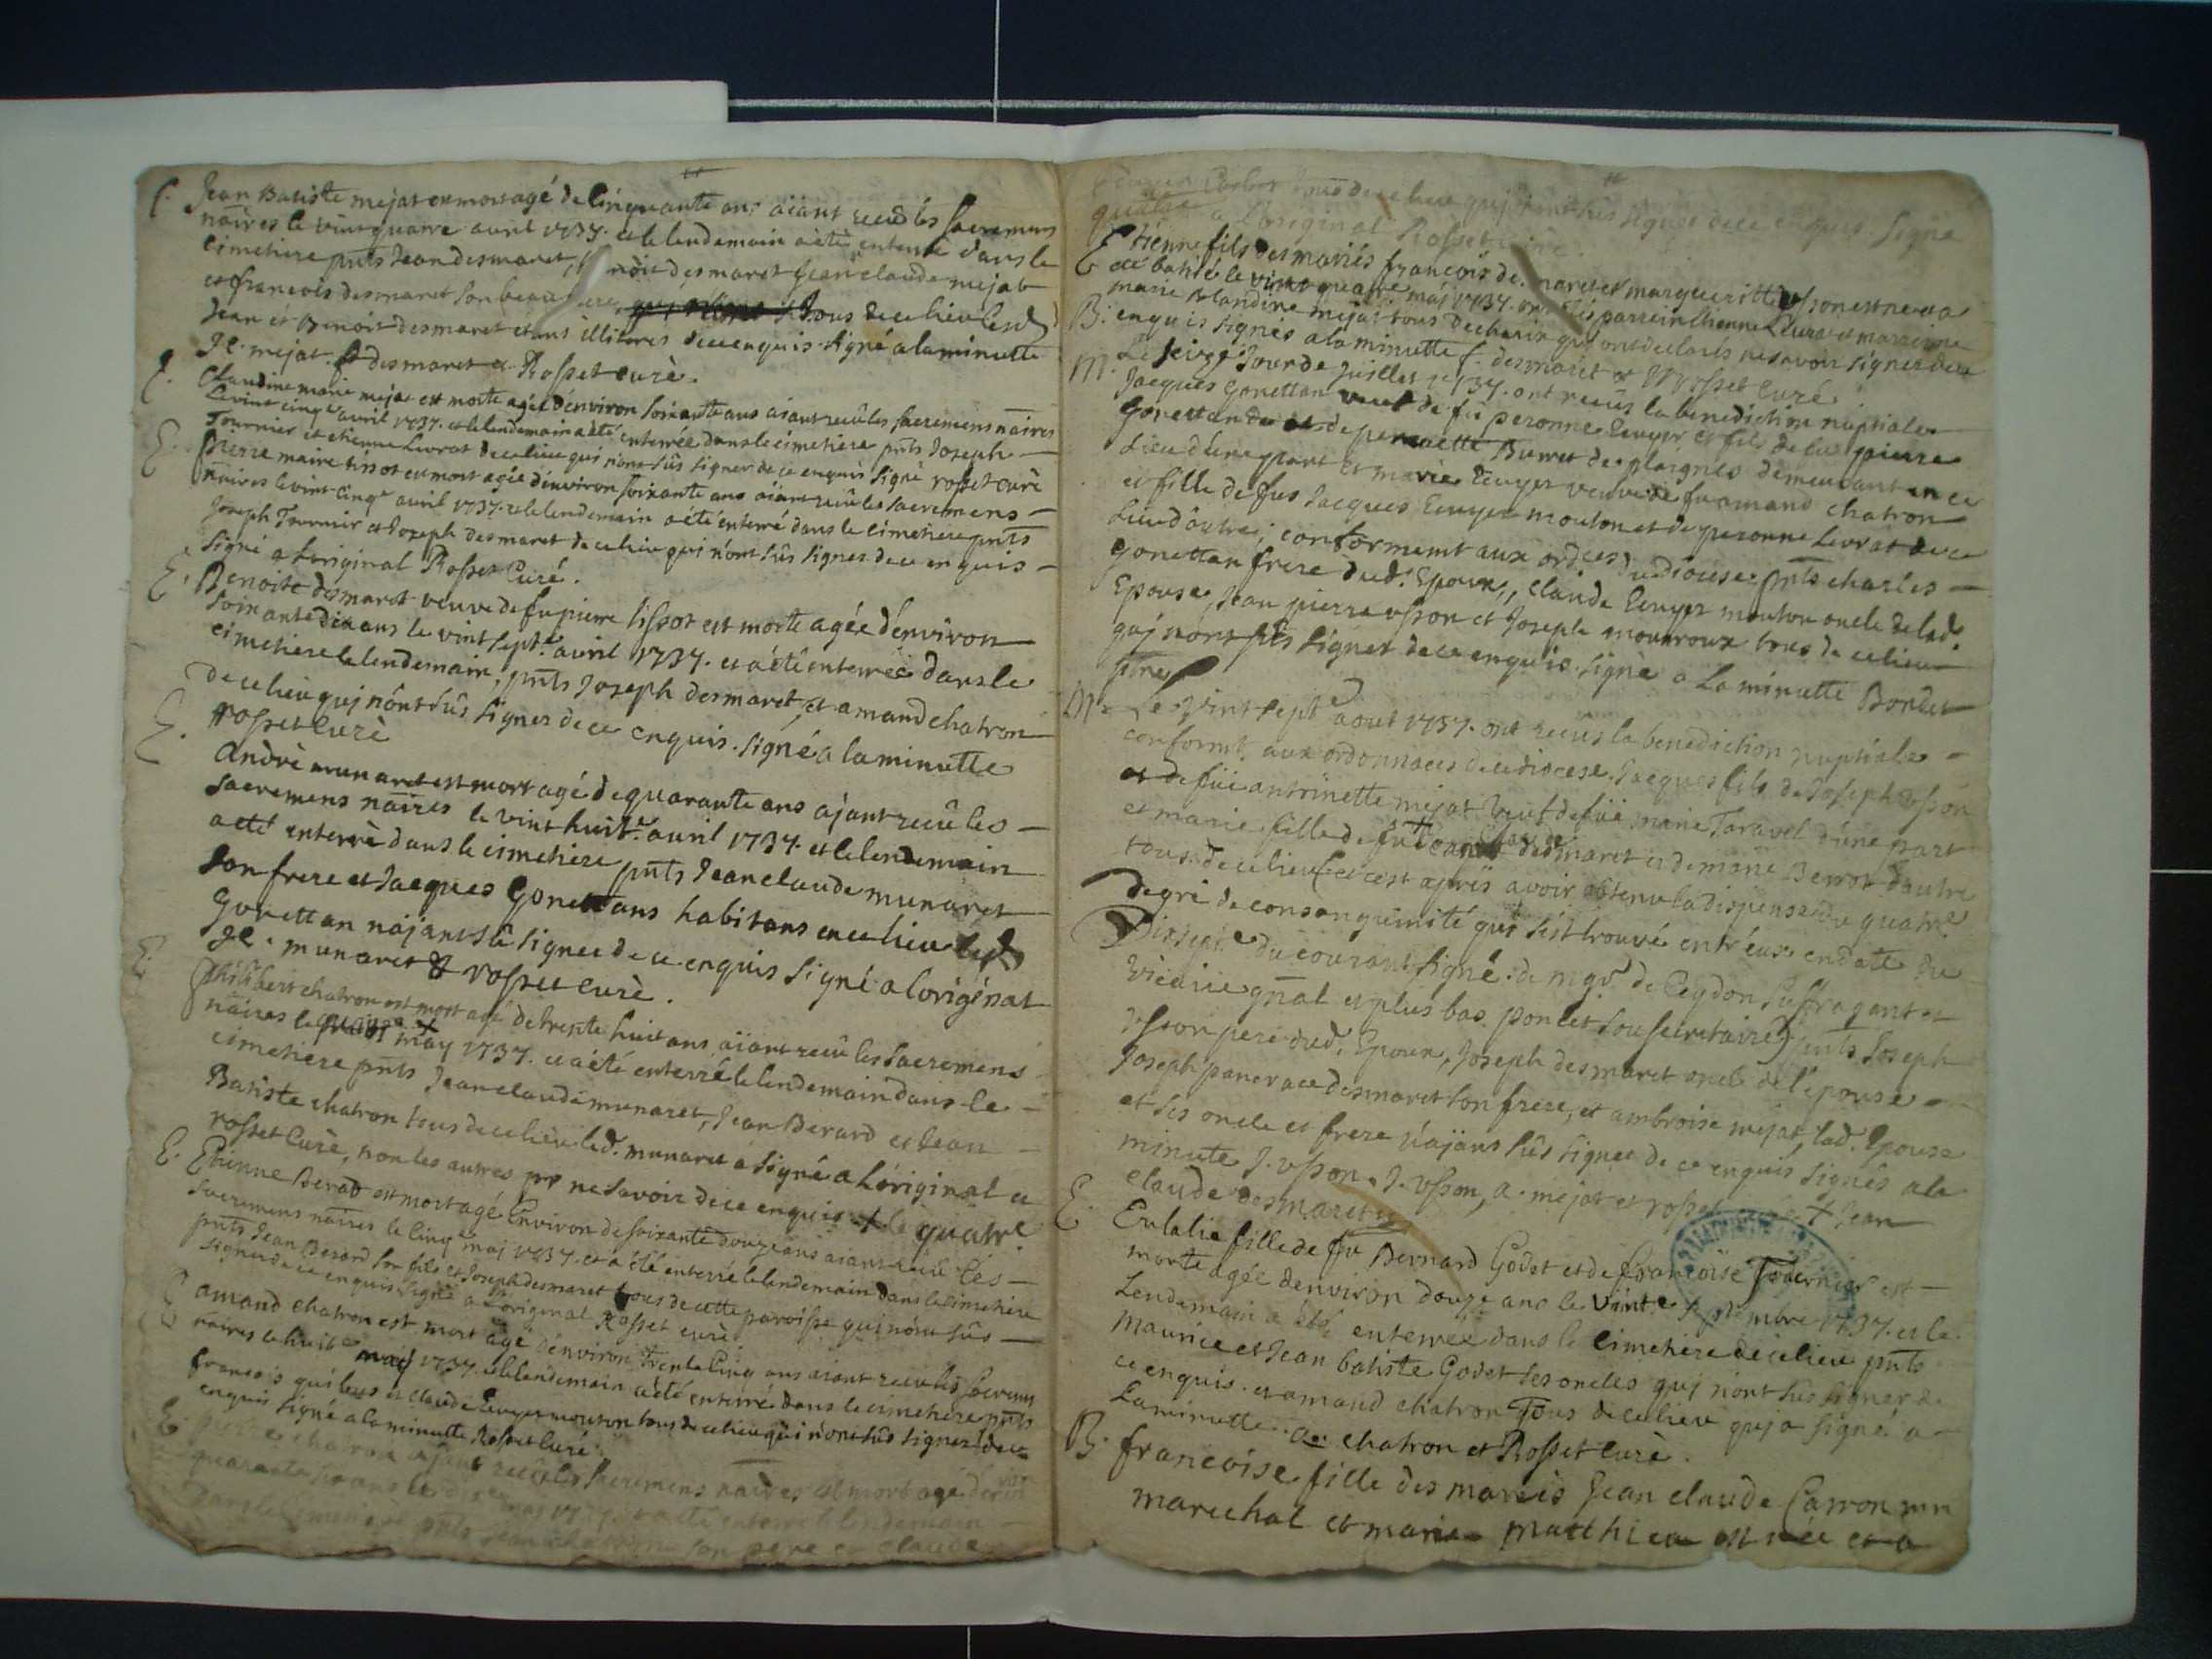 E. Jean Batiste mejat est mort agé de Cinquante ans aiant receu les Sacremens
naires le vint quatre avril 1737. et le lendemain a été enterré dans le
cimetiere pnts Jean desmaret, desmaret Jean claude mejat
et francois desmaret son beau frere, tous de ce lieu lesd
Jean et Benoit desmaret etans illiteres de ce enquis signé a la minutte
J C. mejat. f desmaret & Rosset curè.
E. Claudine marie mejat est morte agée d'environ soixante ans aiant receu les sacremens naires
le vint cinqe avril 1737. et le lendemain a été enterrée dans le cimetiere pnts Joseph
Tournier et etienne Levrat de ce lieu qui n'ont sûs signer de ce enquis signé rosset curè
E. Pierre maire tissot est mort agée d'environ soixante ans aiant receu les sacremens
naires le vint cinqe avril 1737. et le lendemain a été enterré dans le cimetiere pnts
Joseph Tournier et Joseph desmaret de ce lieu qui n'ont sûs signer de ce enquis
signé a L'original Rosset Curé.
E. Benoite desmaret veuve de fu pierre tissot est morte agée d'environ
soixante dix ans le vint septe avril 1737. et a été enterrée dans le
cimetiere le lendemain, pnts Joseph desmaret, et amand chatron
de ce lieu quj n'ont sûs signer de ce enquis. signé a la minutte
rosset Curè
E. Andrè munaret est mort agé de quarante ans ajant receu les
sacremens naires le vint huite avril 1737. et le lendemain
a eté enterrè dans le cimetiere pnts Jean claude munaret
son frere et Jacques Gonettans habitans en ce lieu led
Gonettan n'ajant sû signer de ce enquis signé a l'original
J C. munaret & rosset curè.
E. Philibert chatron est mort agé de trente huit ans aïant receu les sacremens
naires le + may 1737. et a été enterré le lendemain dans le
cimetiere pnts Jean claude munaret, Jean Berard et Jean
Batiste chatron tous de ce lieu led. munaret a signé a L'original et
rosset Curé, non les autres pr ne savoir de ce enquis + le quatre
E. Etienne Berad est mort agé Environ de soixante douze ans aiant receu les
sacremens naires le cinqe maj 1737. et a été enterré le lendemain dans le cimetiere
pnts Jean Berard son fils et Joseph desmaret tous de cette paroisse qui n'ont sûs
signer de ce enquis signé a L'original Rosset curè
E amand chatron est mort agé d'environ trente Cinq ans aiant receu les sacremens
naires le huite maj 1737. et le lendemain a été enterré dans le cimetiere pnts
francois et claude Ecuyer mouton tous de ce lieu qui n'ont sûs signer de ce
enquis signé a la minutte Rosset Curé
E. pierre chatron aiant receu les sacremens naires est mort agé denviron
quarante ans le maj 1737. et a été enterré le lendemain
dans le cimetiere pnts Jean chatron son pere et claude
tous de ce lieu quj n'ont sûs signer de ce enquis. signé
a L'original Rosset curé.
Etienne fils des mariés francois desmaret et margueritte Vsson est ne et a
eté batisé le vint quatre maj 1737. parrein Etienne Levrat et marreinne
marie Blandine mejat tous de ce lieu quj ont declarés ne savoir signer de ce
B. enquis signés a la minutte f. desmaret & Rosset Curé
M. Le seize Jour de Juillet 1737. ont receus la benediction nuptiale
Jacques Gonettan veuf de fu peronne Ecuyer et fils de fu pierre
Gonettan et de pernette Burret de plaignes demeurant en ce
Lieu d'une part et marie Ecuyer veuve de fu amand chatron
et fille de fus Jacques Ecuyer mouton et de peronne Levrat de ce
Lieu d'autre; conformemt aux ordces du diocese pnts charles
Gonettan frere dud. Epoux, claude Ecuyer mouton oncle de lad.
Epouse, Jean pierre vsson et Joseph mouroux tous de ce lieu
quj n'ont sûs signer de ce enquis. signé a La minutte Bordet
ptre
M. Le vint septe aout 1737. ont receus la benediction nuptiale
conformt. aux ordonnaces de ce diocese, Jacques fils de Joseph Vsson
et de füe antoinette mejat veuf de füe marie Taravel d'une part
et marie fille de fu + desmaret et de marie Berrot d'autre
tous de ce lieu (et cest apres avoir obtenu la dispense du quatre.
degré de consanguinité qui s'est trouvé entr'eux en date du
Disseptè du courant signé. de mgr. de Cegdon suffragant et
Vicaire gnal et plus bas. poncet sousecretaire) pnts Joseph
Vsson pere dud. Epoux, Joseph desmaret oncle de l'epouse
Joseph pancrace desmaret son frere, et ambroise mejat, lad. Epouse
et ses oncle et frere n'aÿans sûs signer de ce enquis signés a la
minutte J. vsson. J. vsson, a. mejat et rosset + Jean
claude desmaret
E. Eulalie fille de fu Bernard Godet et de francoise Tavernier est
morte agée denviron douze ans le vinte septembre 1737. et le
Lendemain a été enterree dans le cimetiere de ce lieu pnts
maurice et Jean batiste Godet ses oncles quj n'ont sûs signer de
ce enquis. et amand chatron Tous de ce lieu quj a signé a
La minutte. a. chatron et Rosset Curè.
B. francoise fille des mariés Jean claude Carron
marechal et marie matthieu est née et a